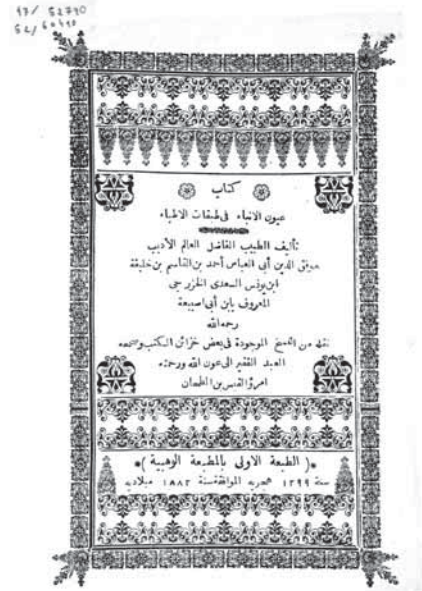 47/ 52740
52/60440
كتاب
عيون الانباء فى طبقات الاطباء
تأليف الطبيب الفاضل العالم الأديب
موفق الدين أبى العباس أحمد بن القاسم بن خليفة
ابن يونس السعدى الخزرجى
المعروف بابن أبى اصيبعة
رحمه الله
نقله من النسخ الموجودة فى بعض خزائن الكتب وصححه
العبد الفقير الى عون الله ورحمته
امرؤ القيس بن الطحان
*( الطبعة الاولى بالمطبعة الوهبية )*
سنة ١٢٩٩ هجريه الموافقة سنة ١٨٨٢ ميلاديه